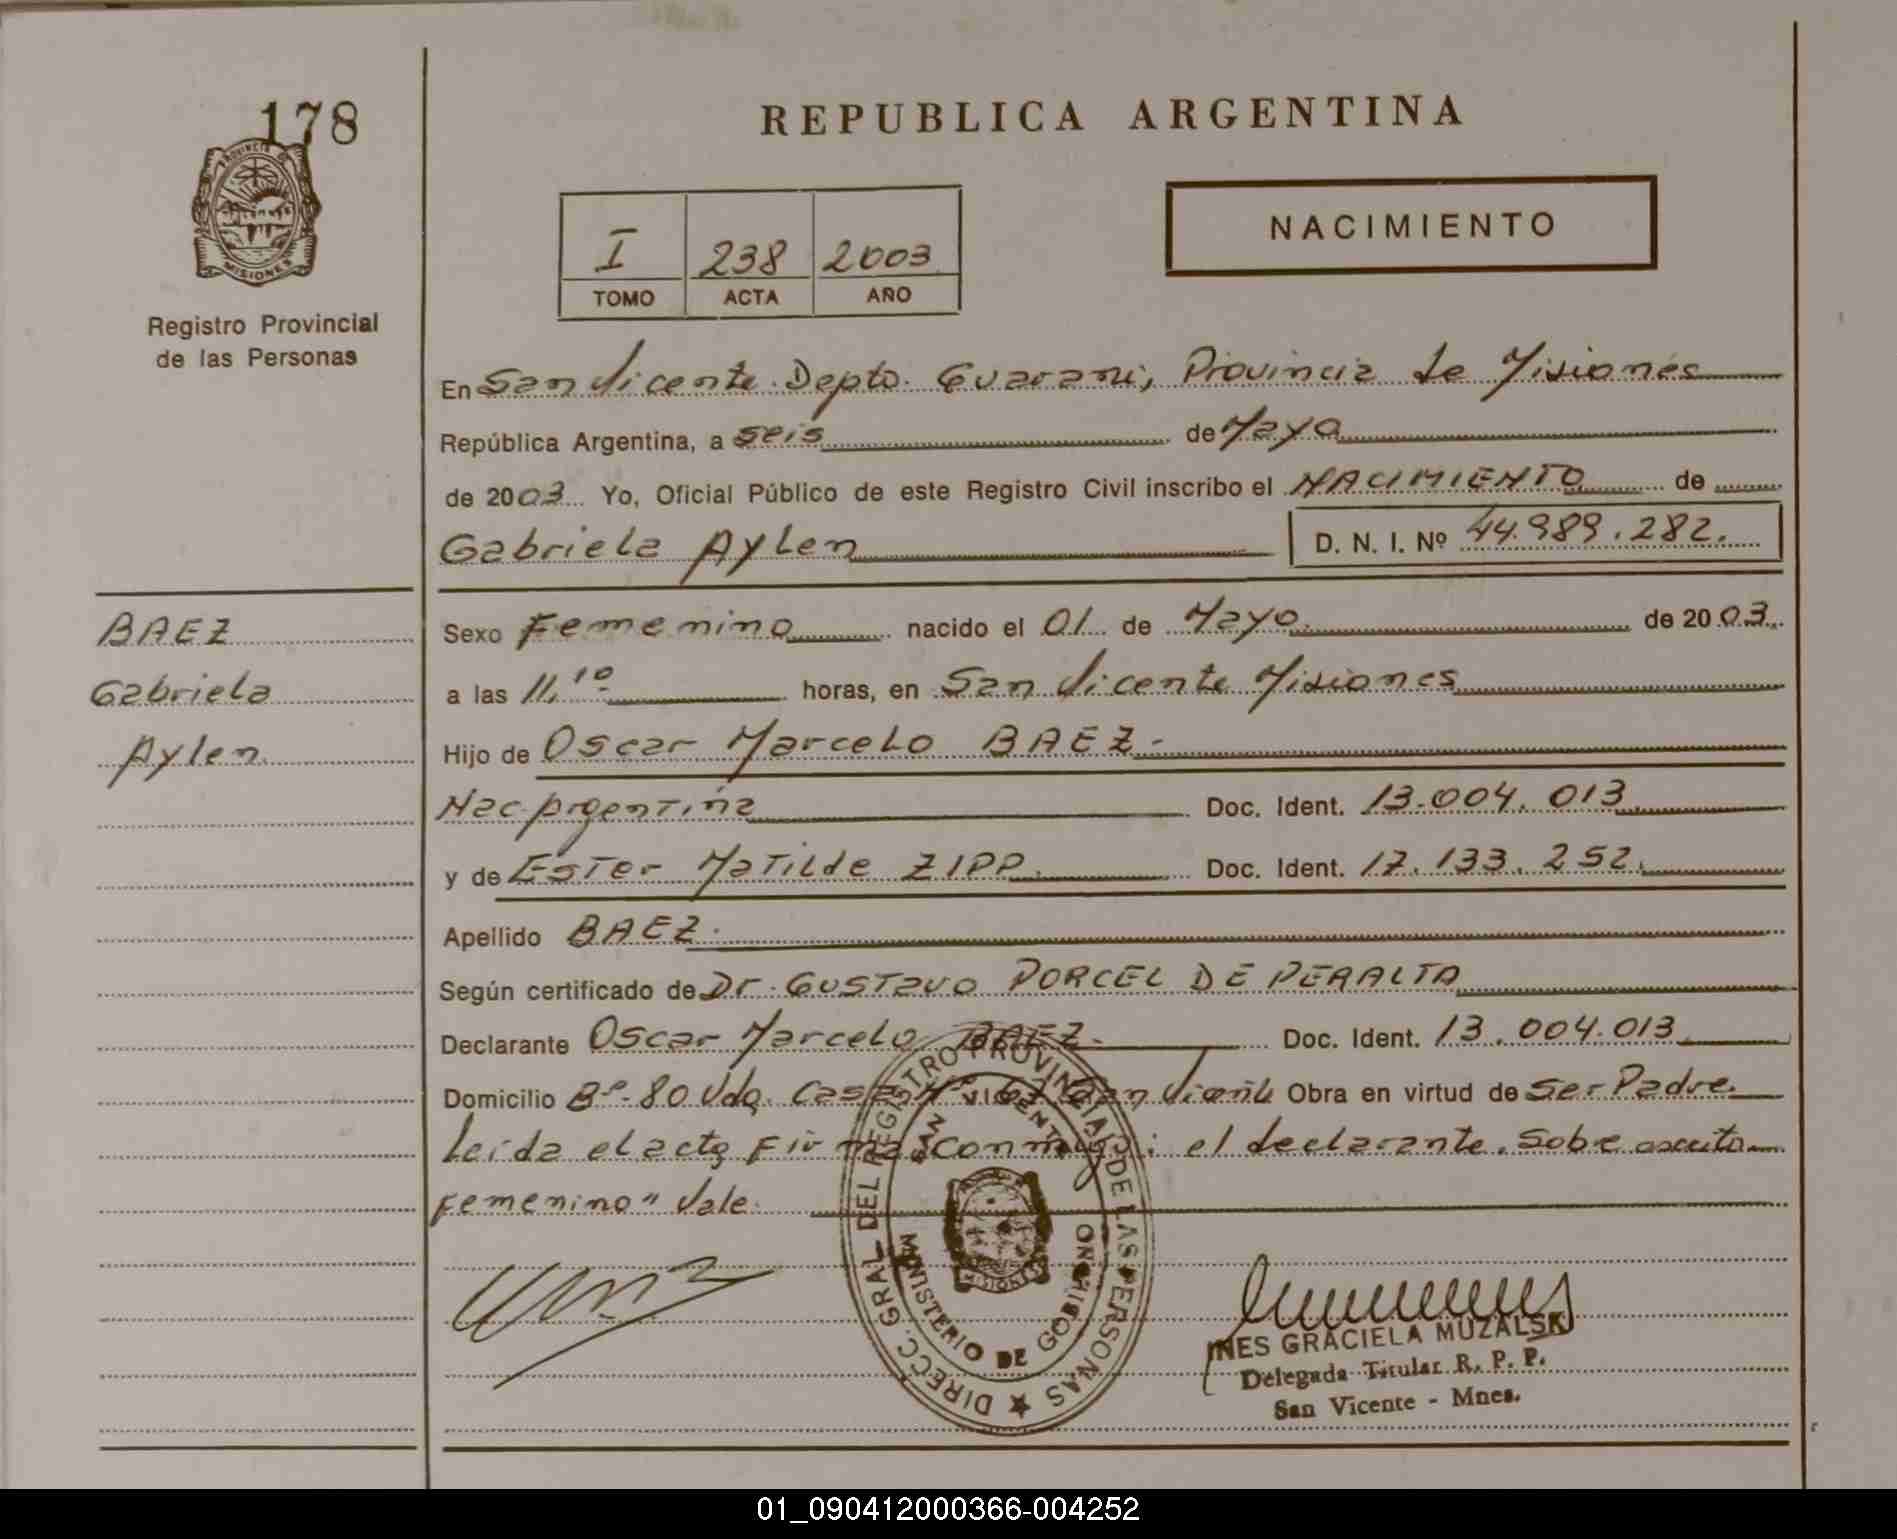 178
PROVINCIA DE
MISIONES
Registro Provincial
de las Personas
REPUBLICA ARGENTINA
I 238 2003
TOMO ACTA AÑO
NACIMIENTO
En San Vicente Depto. Guarani, Provincia de Misiones
República Argentina, a seis de Mayo
de 2003 Yo, Oficial Público de este Registro Civil inscribo el NACIMIENTO de
Gabriela Aylen D. N. I. Nº 44.989.282.
BAEZ
Gabriela
Aylen
Sexo Femenino nacido el 01 de Mayo de 2003
a las 11,10 horas, en San Vicente Misiones
Hijo de Oscar Marcelo BAEZ-
Nac. Argentina Doc. Ident. 13.004.013
y de Ester Matilde ZIPP Doc. Ident. 17.133.252.
Apellido BAEZ.
Según certificado de Dr. Gustavo PORCEL DE PERALTA
Declarante Oscar Marcelo BAEZ. Doc. Ident. 13.004.013
Domicilio Bº-80 Vdas. Casa Nº San Vicente Obra en virtud de ser Padre
Leída el acta firma conmigo: el declarante. Sobre escrito
Femenino" Vale.
DIRECC. GRAL. DEL REGISTRO PROVINCIAL DE LAS PERSONAS
SAN VICENTE
MISIONES
MINISTERIO DE GOBIERNO
INES GRACIELA MUZALSKI
Delegada Titular R. P. P.
San Vicente - Mnes.
01_090412000366-004252